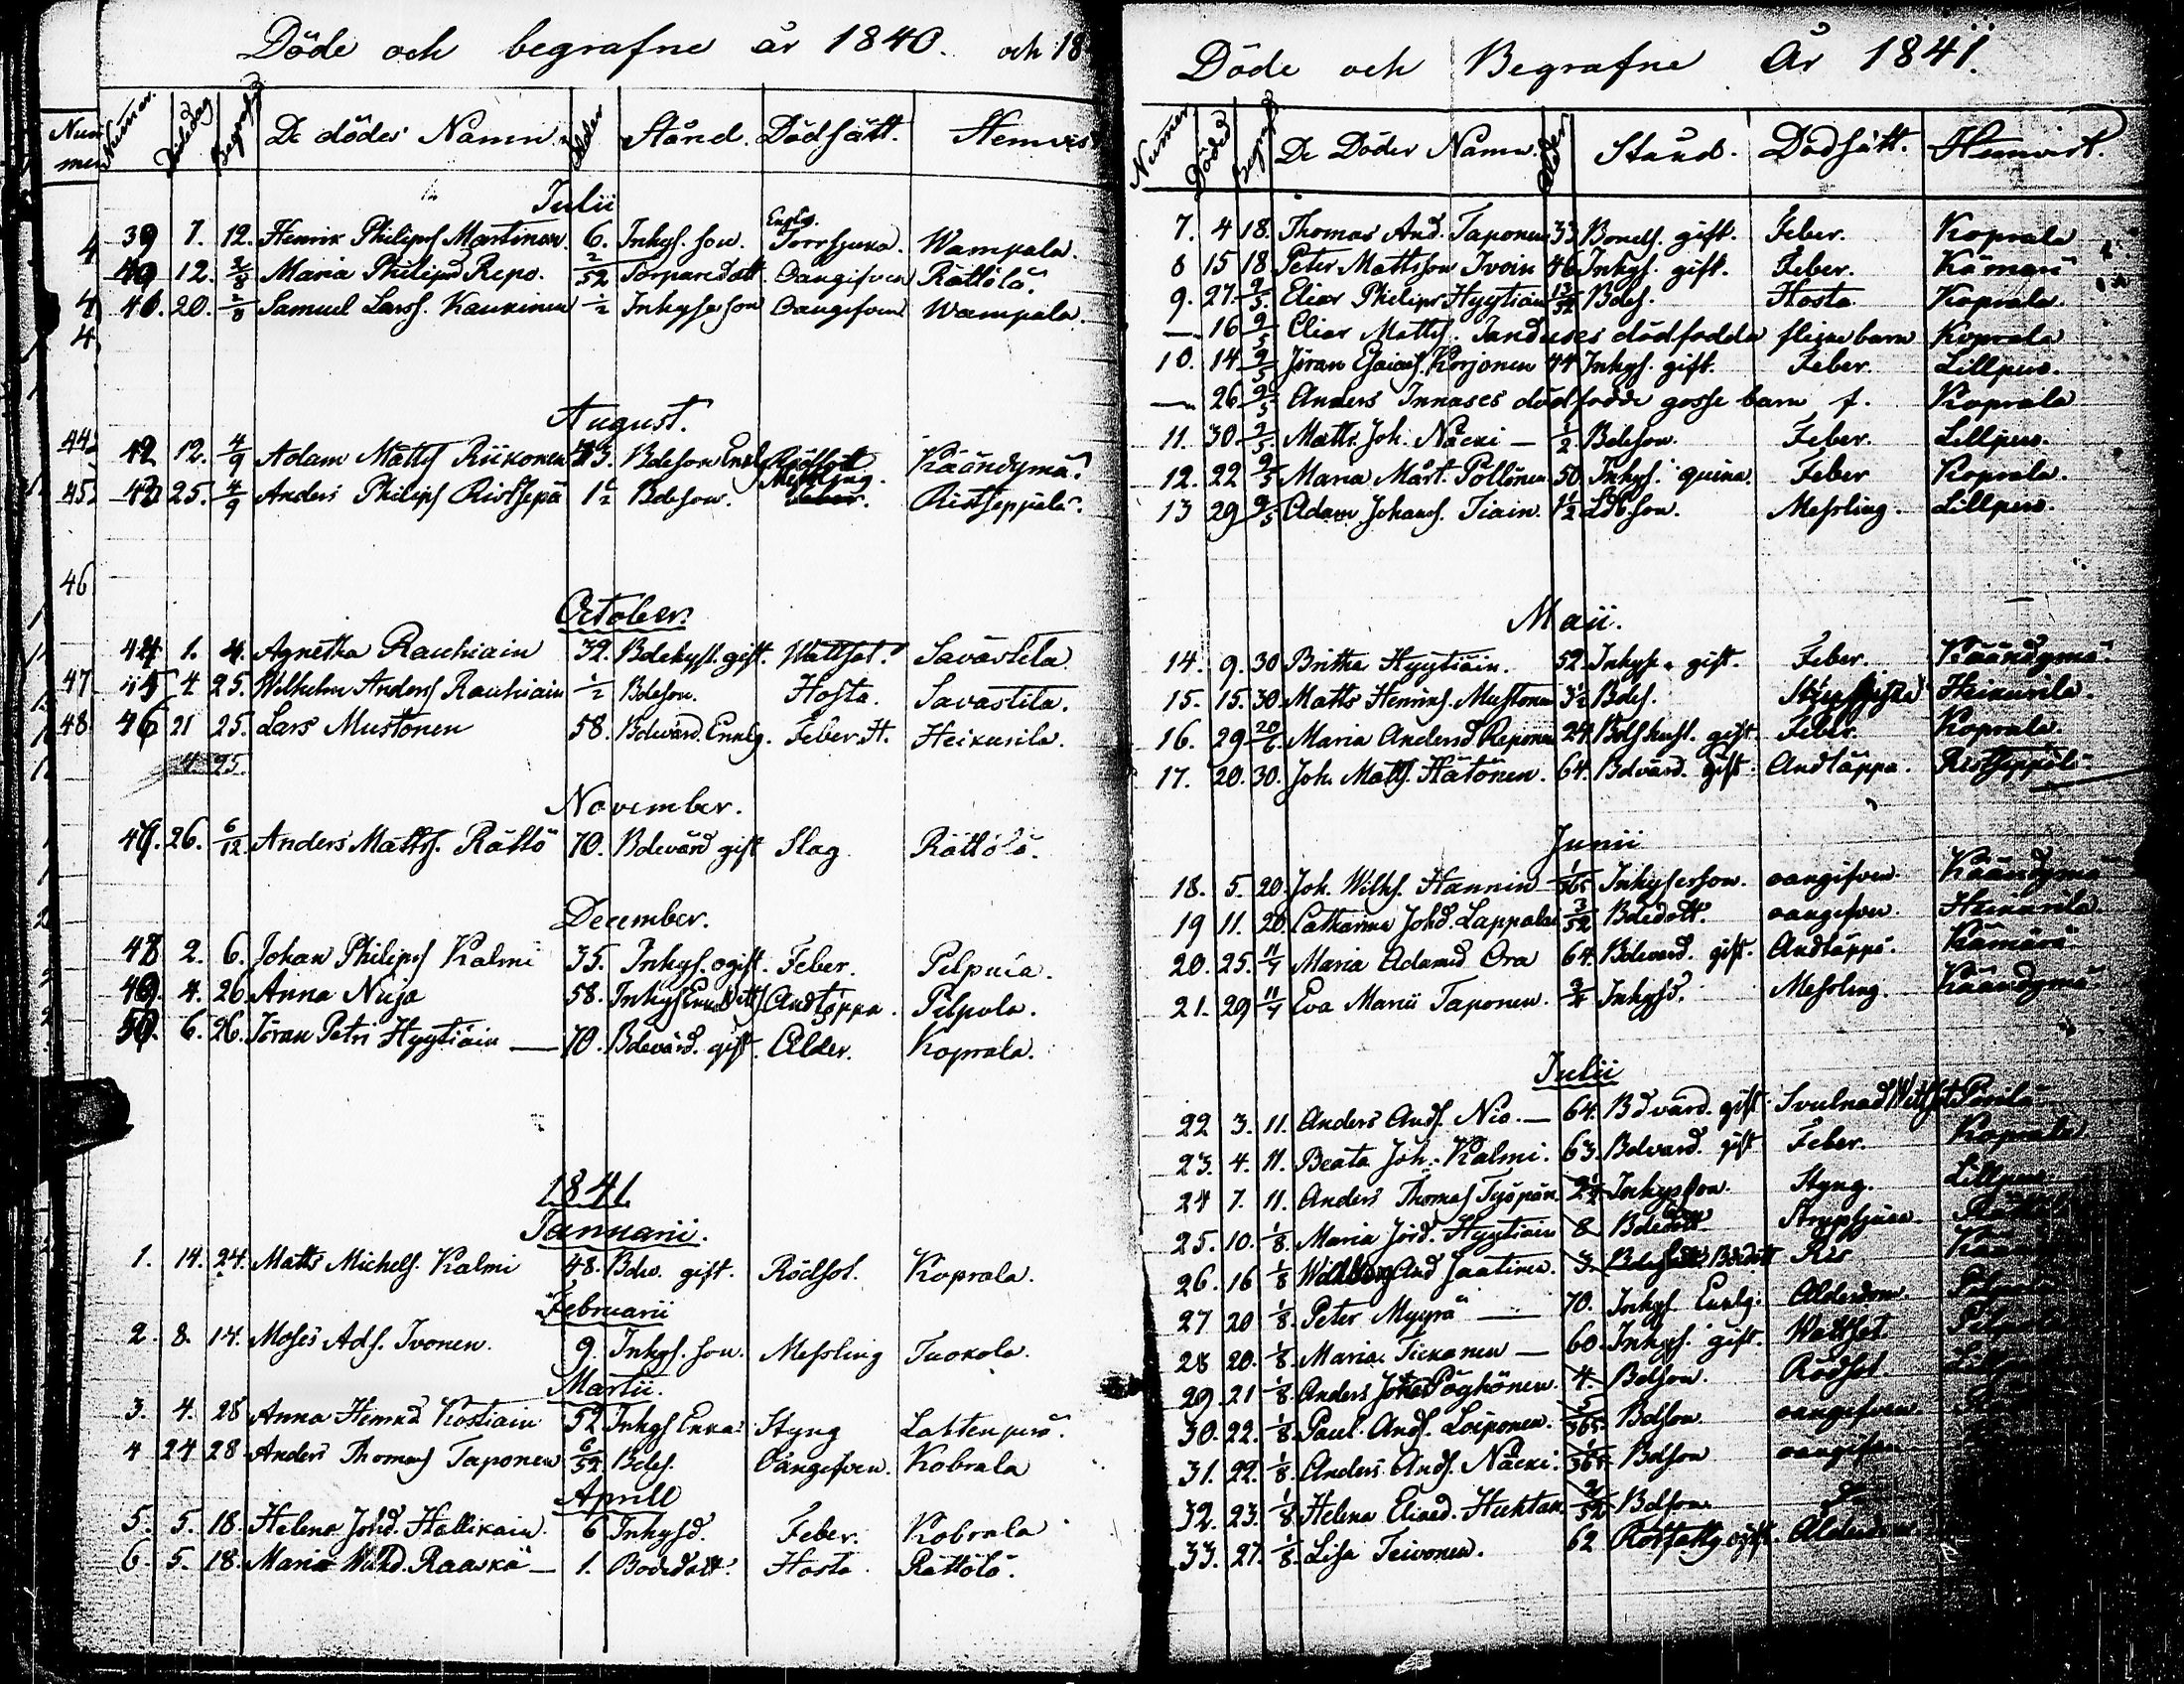 Döde och begrafne år 1840. och 18
Nummer. Dödedag Begrafd De dödes Namn. Ålder Stånd. Dödsätt. Hemvis
Julii
39 7. 12. Henrik Philips Martinen. 6. Inhys. son. Torrsjuka. Wampala.
40 12. 2/8 Maria Philipsd Repo. 2/52 Torparedott. Oangifven Rättölä.
41. 20. 2/8 Samuel Larss. Kaukinen 1/2 Inhyse son Oangifven Wampala.
August.
44 42 12. 4/9 Adam Matts Riikonen 73. Bdeson Enkl. Rödsot Käändymä.
45. 43 25. 4/9 Anders Philips Ristsepä 1 1/2 Bdeson. Messling. Ristseppälä.
46
October.
44 1. 4. Agnetha Rauhiain 32. Bdehust. gift. Wattsot. Savastila
47. 45 4 25. Wilhelm Anders Rauhiain 1/2 Bdeson. Hosta. Savastila.
48 46 21 25. Lars Mustonen 58. Bdevärd. Enklg. Feber. H. Heikurila.
4. 25.
November.
47. 26. 6/12. Anders Matts. Rättö 70. Bdevärd gift Slag Rättölä.
December.
48 2. 6. Johan Philips Kalmi 35. Inhys. ogift. Feber. Pilpula.
49. 4. 26 Anna Nuja 58. Inhys Andtäppa. Pilpola.
50. 6. 26. Jöran Petri Hyytiäin — 70. Bdevärd. gift. Ålder. Koprala.
1841.
Januarii.
1. 14. 24. Matts Michels. Kalmi 48. Bdev. gift. Rödsot. Koprala.
Februarii
2. 8. 14. Moses Ads. Ivonen. 9. Inhys. son. Messling Tuokola.
Martii.
3. 4. 28 Anna Henrsd Kostiain 52 Inhys Enka Styng Lahtenperä.
4 24 28 Anders Thomas Taponen 6/52 Bdes. Oangifven. Kobrala
Aprill
5. 5. 18. Helena Johd. Hallikain. 6 Inhysd. Feber. Kobrala
6. 5. 18. Maria Wilhd. Raaskä — 1. Bodedott. Hosta. Rättölä.
Döde och Begrafne År 1841.
Nummer. Döded Begraf De Döder Namn. Ålder Stånd. Dödsätt. Hemvist.
7. 4 18. Thomas And. Taponen 33 Bondes. gift. Feber. Koprala
8 15 18 Peter Mattsson Ivoin 46 Inhys. gift. Feber. Kämärä
9. 27. 9/5. Elias Philips Hyytiäin Bdes. Hosta Koprala.
— 16 9/5 Elias Matts. Janduses dödfödda flicka barn Koprala
10. 14 9/5 Jöran Esaias. Korjonen 44 Inhys. gift. Feber. Lillpero.
— 26 9/5 Anders Innases dödfödde gosse barn f. Koprala
11. 30 9/5. Matts. Joh. Näcki — 1/2 Bdeson. Feber. Lillpero.
12. 22 9/5 Maria Mårt. Pöllönen 50. Inhys. quina. Feber Koprala.
13 29 9/5 Adam Johans. Tiain. 1 1/2 Ldbson. Messling. Lillpero.
Maii.
14. 9. 30 Britha Hyytiäin. 52. Inhyse. gift. Feber. Käändymä.
15. 15. 30. Matts Henriks. Mustonen 3 1/2 Bdes. Heikurila.
16. 29 20/6. Maria Andersd. Reponen 24. Bdshust. gift Feber. Koprala.
17. 20. 30. Joh. Matts. Hätönen. 64. Bdvärd. gift. Andtäppa. Ristseppälä
Junii
18. 5. 20. Joh. Wilhs. Hannin 1/365 Inhyserson. oangifven. Käändymä
19 11. 20. Catharina Johd. Lappalai 3/52 Bdedott. oangifven. Heikurila.
20. 25. 11/7 Maria Adamsd Ora 64. Bdevärd. gift. Andtäppa. Kämärä
21. 29 11/7 Eva Marii Taponen. 3/4 Inhysd. Messling. Käändymä.
Julii
22 3. 11. Anders Ands. Nio. — 64. Bdvärd. gift. Svulnad Wattsot Perilä
23. 4. 11. Beata Joh. Kalmi. 63. Bdvard. gift Feber. Koprala
24 7. 11. Anders Thomas Tyspän. 2 1/4 Inhysson. Styng. Lillpero
25. 10. 1/8. Maria Jörd. Hyytiäin 8 Bdedott. Strypsjuka.
26. 16 1/8 Wallborg And Jaatinen. 3 Bdedott Ris
27 20 1/8. Peter Myyrä — 70. Inhys Enklg. Ålderdom. Pilpula
28 20. 1/8. Maria Tiikanen — 60. Inhys. gift. Wattsot Pilpula
29 21 1/8. Anders Pöyhönen. 4. Bdson. Rödsot.
30. 22. 1/8. Paul Ands. Loiponen. 5/365. Bdson oangifven
31. 22. 1/8. Anders Ands. Näcki. 1/365 Bdson oangifven
32. 23. 1/8. Helena Eliasd. Huhtan. 2/52 Bdson. Do
33. 27. 1/8. Lisa Teivonen. 62 Rotfattg. ogift. Ålderdom